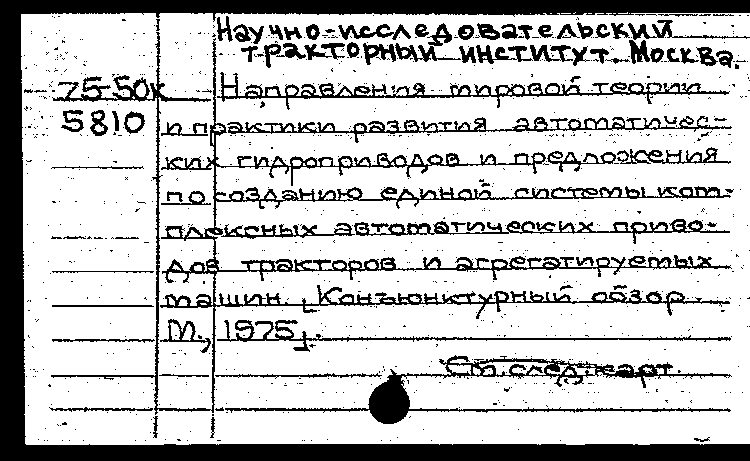 Научно-исследовательский
тракторный институт. Москва.
75-50к Направления мировой теории
5810 и практики развития автоматичес-
ких гидроприводов и предложения
по созданию единой системы ком-
плексных автоматических приво-
дов тракторов и агрегатируемых
машин. [Конъюнктурный обзор.
М., 1975].
См. след. карт.